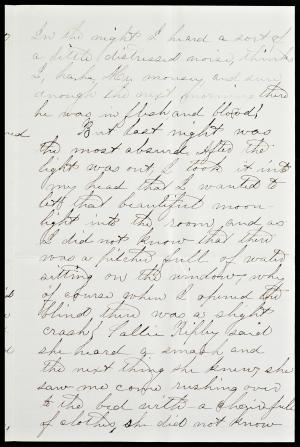 In the night I heard a sort of
a little distressed noise, thinks
I, ha, ha, Mr. mousey, and sure
enough the next morning there
he was in flesh and blood!
But last night was
the most absurd. After the
light was out, I took it into
my head that I wanted to
let that beautiful moon-
light into the room, and as
I did not know that there
was a pitcher full of water
sitting on the window, why
of course when I opened the
blind, there was a slight
crash! Sallie Ripley said
she heard a smash and
the next thing she knew, she
saw me come rushing over
to the bed with a chair full
of clothes, she did not know